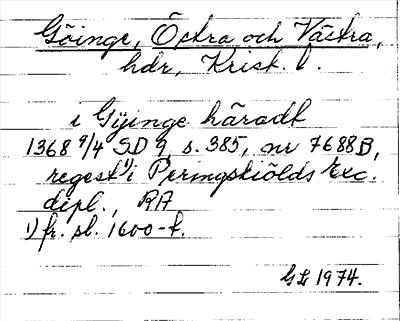 Göinge, Östra och Västra,
hdr, Krist. l.
i Gyinge häradt
1368 9/4 SD 9 s. 385, nr 7688B,
regest 1) i Peringskiölds Exc.
dipl., RA
1) fr. sl. 1600-t.
GL 1974.